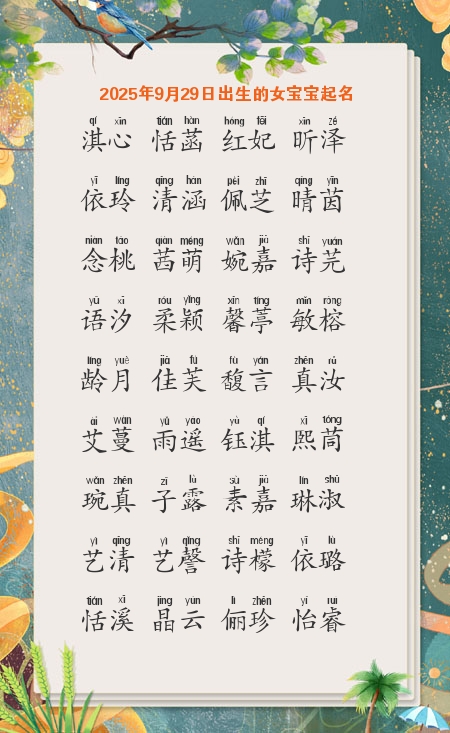 2025年9月29日出生的女宝宝起名
qí xīn tián hàn hóng fēi xīn zé
淇心 恬菡 红妃 昕泽
yī líng qīng hán pèi zhī qíng yīn
依玲 清涵 佩芝 晴茵
niàn táo qiàn méng wǎn jiā shī yuán
念桃 茜萌 婉嘉 诗芫
yǔ xī róu yǐng xīn tíng mǐn róng
语汐 柔颖 馨葶 敏榕
líng yuè jiā fú fù yán zhēn rǔ
龄月 佳芙 馥言 真汝
ài wàn yǔ yáo yù qí xī tóng
艾蔓 雨遥 钰淇 熙茼
wǎn zhēn zǐ lù sù jiā lín shū
琬真 子露 素嘉 琳淑
yì qīng yì qìng shī méng yī lù
艺清 艺謦 诗檬 依璐
tián xī jīng yún lì zhēn yí ruì
恬溪 晶云 俪珍 怡睿